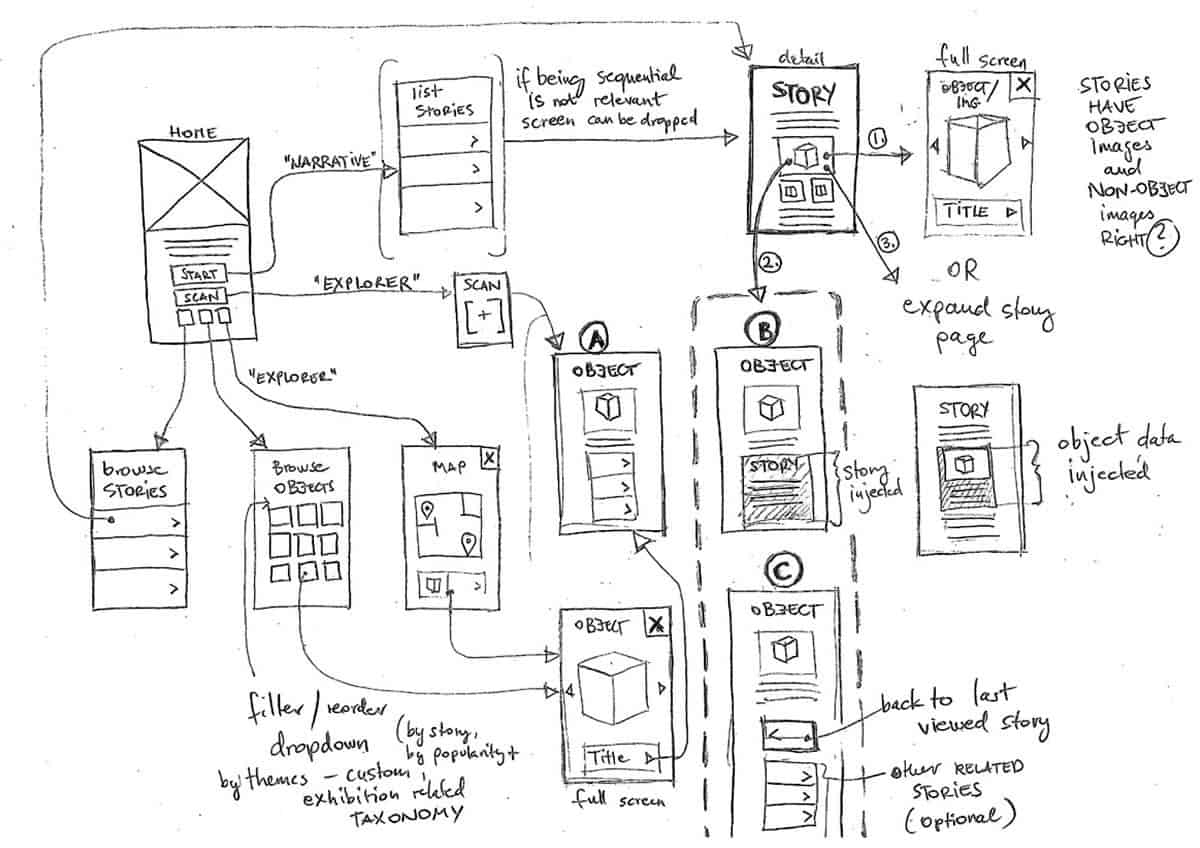 HOME
START
SCAN
"NARRATIVE"
list
STORIES
if being sequential
is not relevant
screen can be dropped
detail
STORY
1.
2.
3.
full screen
OBJECT/
IMG
X
TITLE
STORIES
HAVE
OBJECT
images
and
NON-OBJECT
images
RIGHT?
OR
expand story
page
"EXPLORER"
SCAN
[+]
"EXPLORER"
browse
STORIES
BROWSE
OBJECTS
MAP
X
A
OBJECT
B
OBJECT
STORY
story
injected
STORY
object data
injected
C
OBJECT
back to last
viewed story
other RELATED
STORIES
(optional)
OBJECT
X
Title
full screen
filter/reorder
dropdown
(by story,
by popularity +
by themes – custom,
exhibition related
TAXONOMY